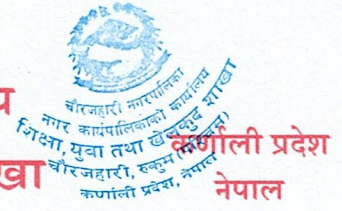 चौरजहारी नगरपालिका
नगर कार्यपालिकाको कार्यालय
शिक्षा, युवा तथा खेलकुद शाखा
चौरजहारी, रुकुम (पश्चिम)
कर्णाली प्रदेश, नेपाल
य
खा
कर्णाली प्रदेश
नेपाल